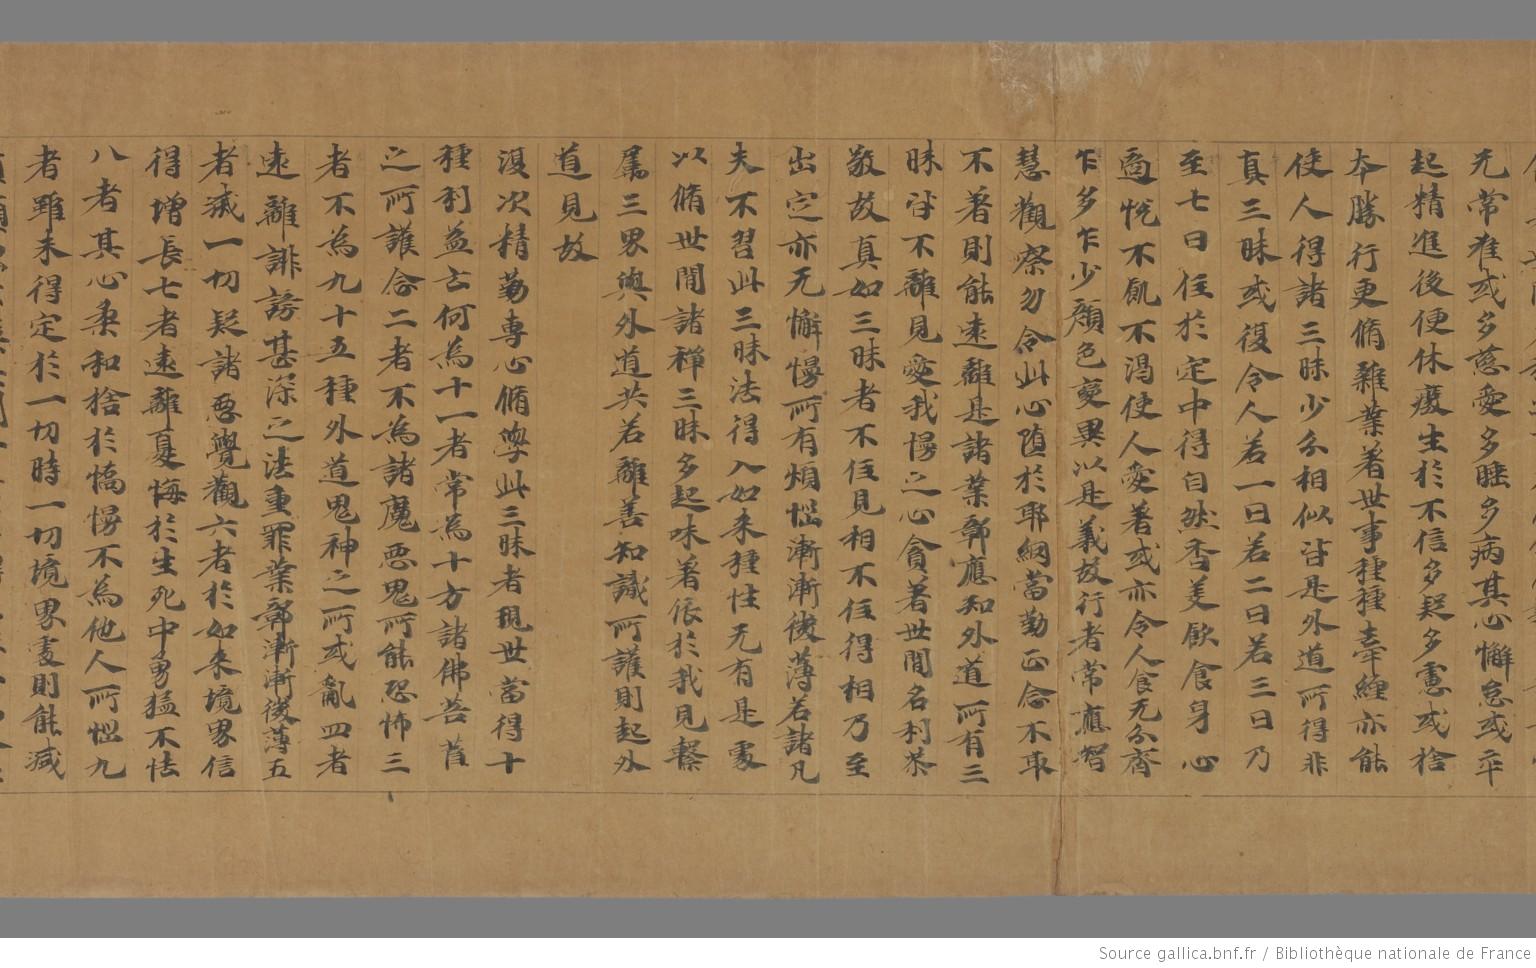 无常准或多慈愛多睡多病其心懈怠或卒
起精進後便休癈生於不信多疑多慮或捨
本勝行更脩雜業著世事種種牽纏亦能
使人得諸三昧少分相似皆是外道所得非
真三昧或復令人若一日若二日若三日乃
至七日住於定中得自然香美飲食身心
適悅不飢不渴使人愛著或亦令人食无分齊
乍多乍少顏色變異以是義故行者常應智
慧觀察勿令此心墮於耶網當勤正念不取
不著則能遠離是諸業鄣應知外道所有三
昧皆不離見愛我慢之心貪著世間名利恭
敬故真如三昧者不住見相不住得相乃至
出定亦无懈慢所有煩惱漸漸微薄若諸凡
夫不習此三昧法得入如来種性无有是處
以脩世間諸禪三昧多起味著依於我見繫
屬三界與外道共若離善知識所護則起外
道見故
復次精勤專心脩學此三昧者現世當得十
種利益云何為十一者常為十方諸佛菩薩
之所護念二者不為諸魔惡鬼所能恐怖三
者不為九十五種外道鬼神之所或亂四者
遠離誹謗甚深之法重罪業鄣漸漸微薄五
者滅一切疑諸惡覺觀六者於如来境界信
得增長七者遠離憂悔於生死中勇猛不怯
八者其心柔和捨於憍慢不為他人所惱九
者雖未得定於一切時一切境界處則能減
Source gallica.bnf.fr / Bibliothèque nationale de France